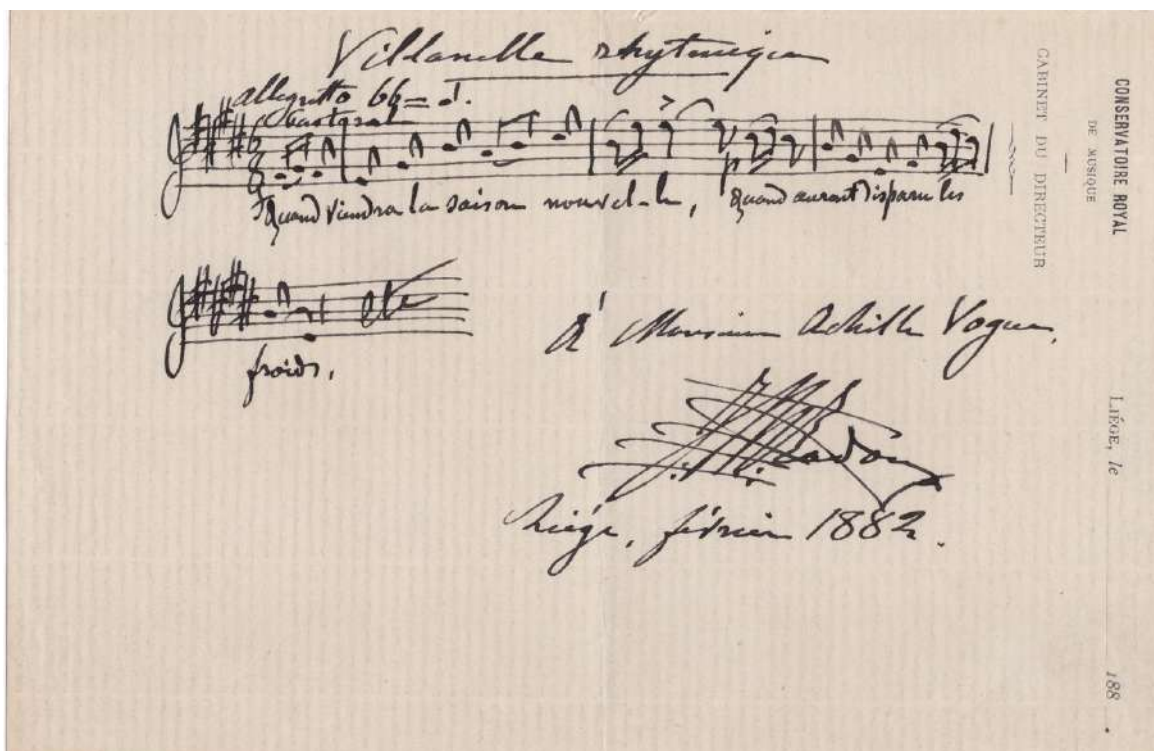 Villanelle rhytmique
allegretto 66 = ♩.
pastoral
6
8
Quand viendra la saison nouvel-le, Quand auront disparu les
etc
froids.
À Monsieur Achille
Liége, février 1882.
CONSERVATOIRE ROYAL
DE MUSIQUE
CABINET DU DIRECTEUR
LIÉGE, le
188 .